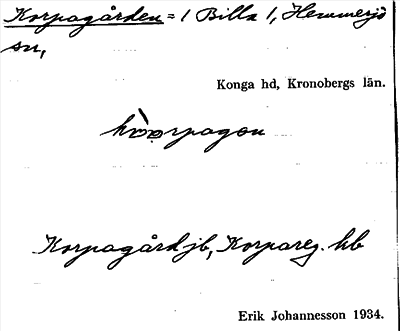 Korpagården = 1 Billa 1, Hemmesjö
sn,
Konga hd, Kronobergs län.
Korpagård jb, Korpareg. hb
Erik Johannesson 1934.